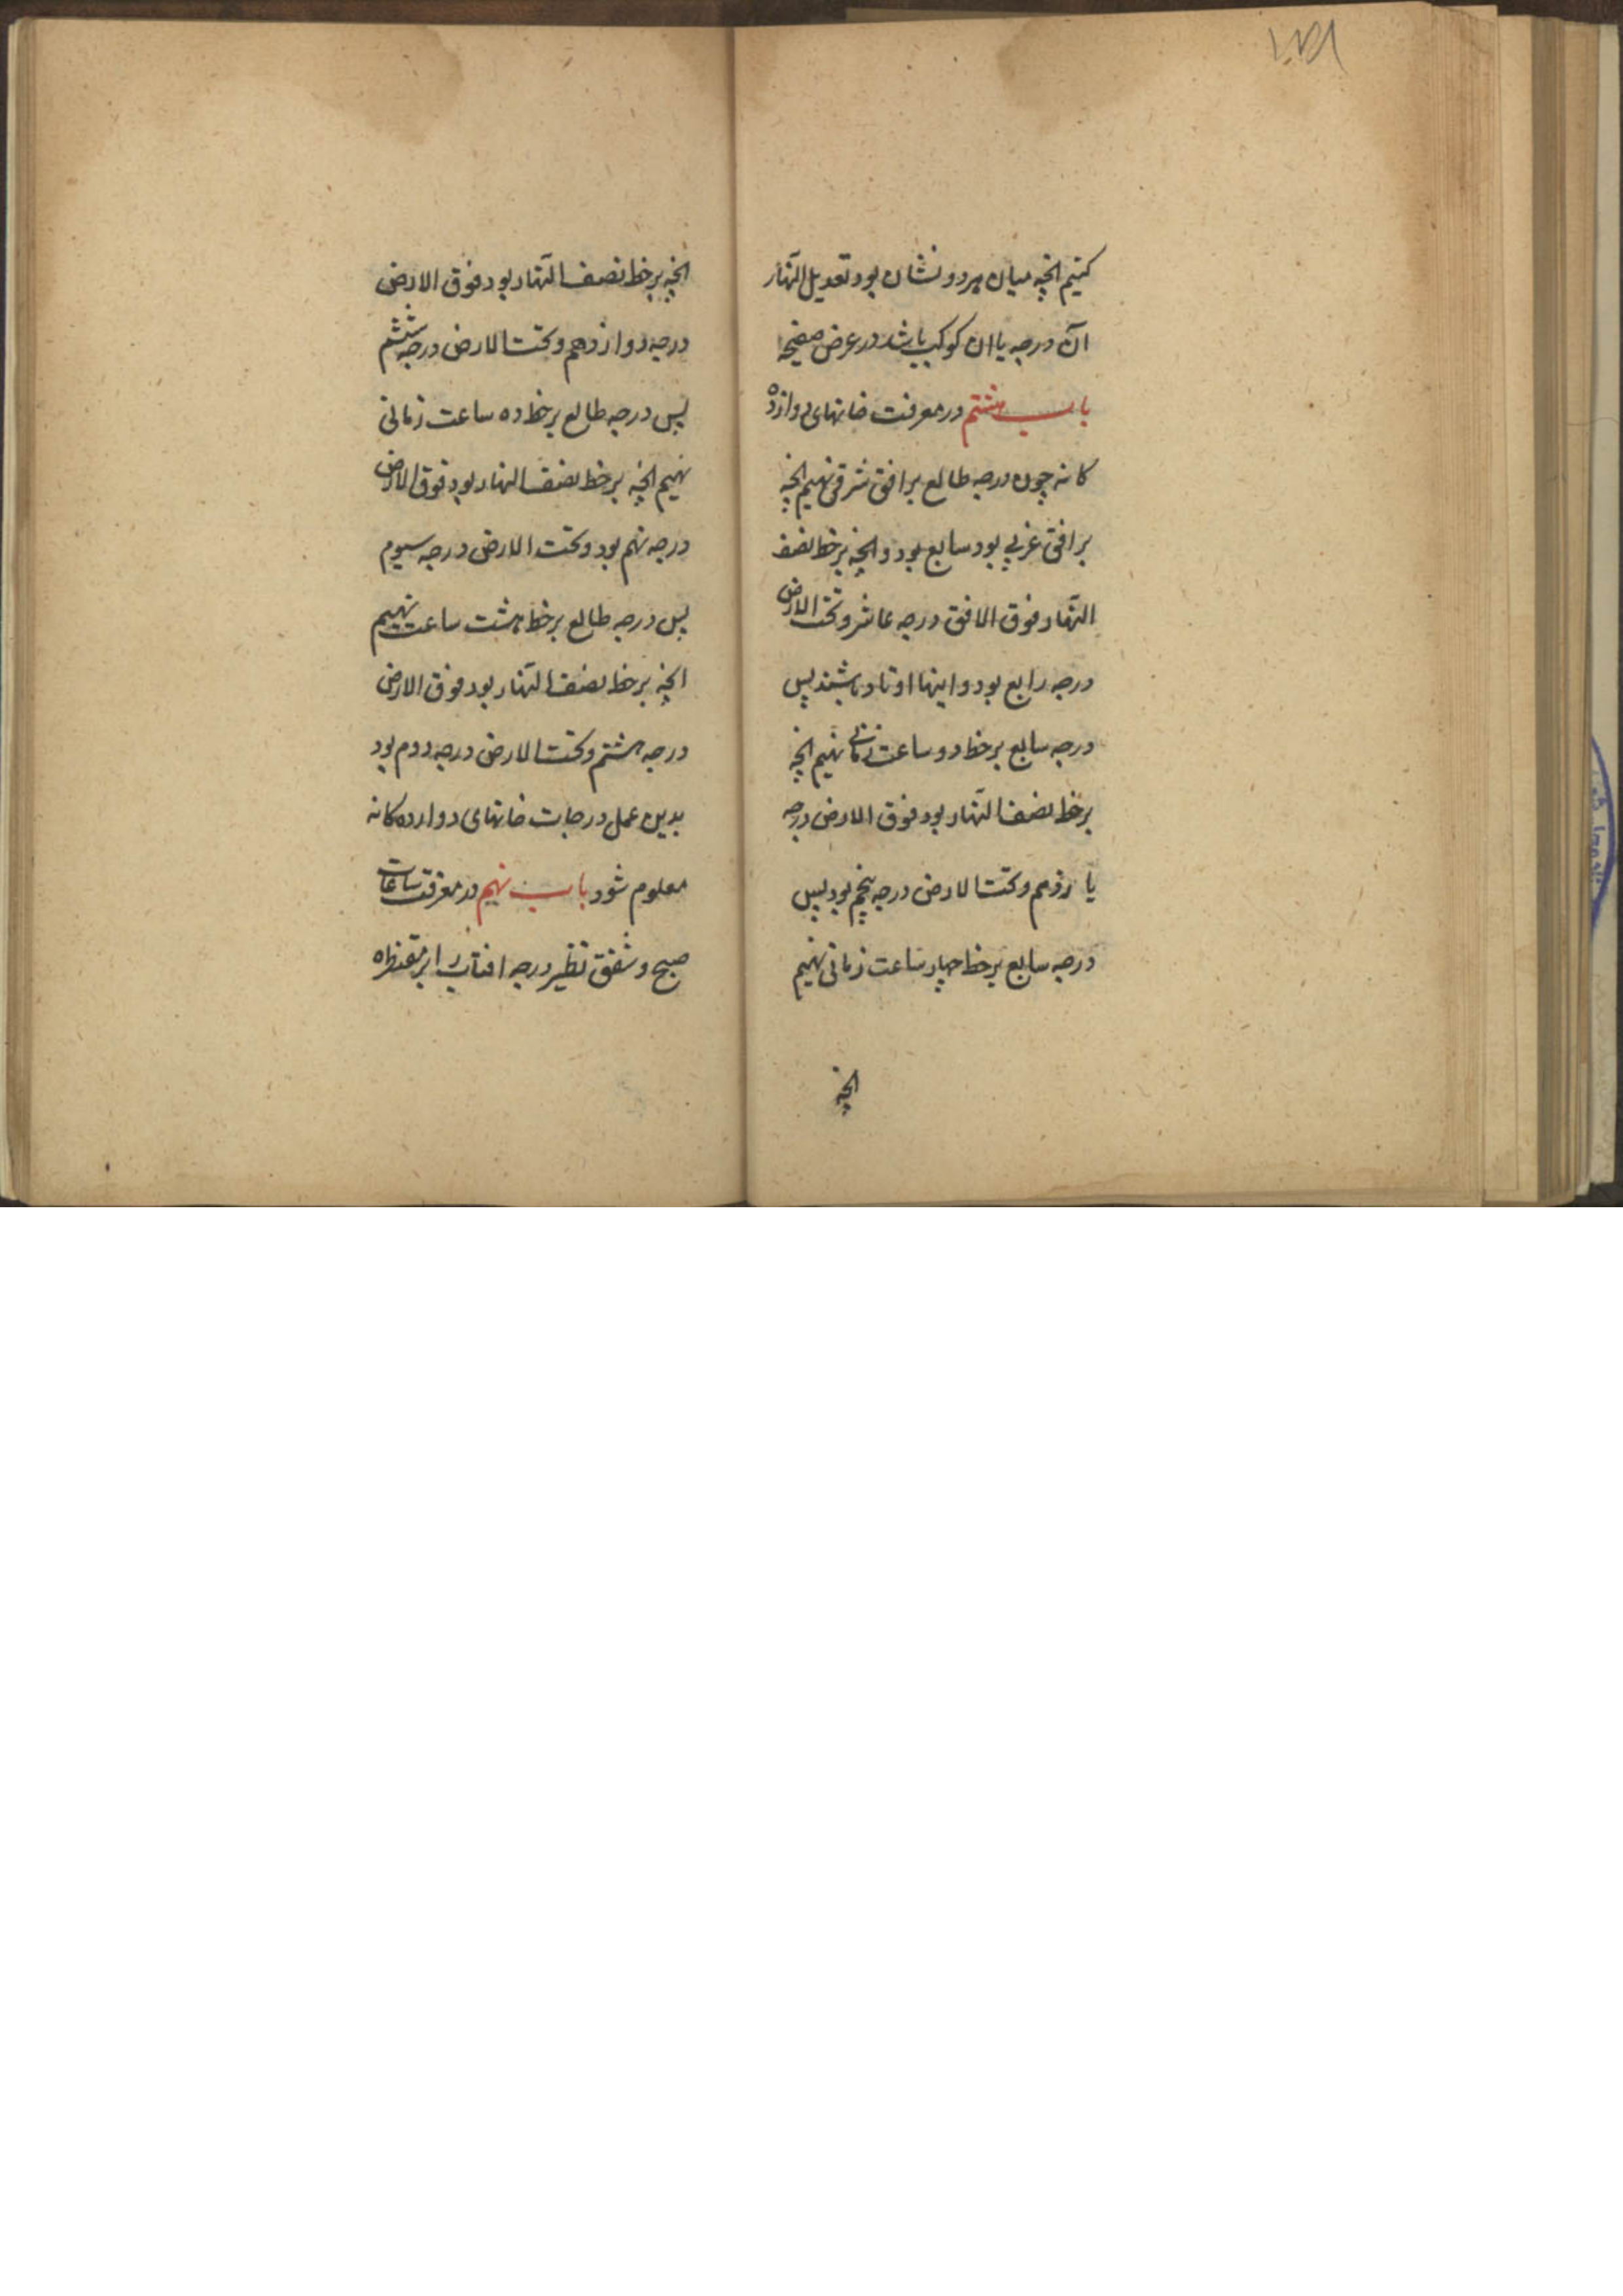 کنیم انچه میان هر دو نشان بود تعدیل النّهار
آن درجه یا ان کوکب باشد در عرض صفیحه
باب هشتم در معرفت خانهای دوازده
کانه چون درجه طالع بر افق شرقی نهیم انچه
بر افق غربی بود سابع بود و انچه بر خط نصف
النّهار فوق الافق درجه عاشر و تحت الارض
درجه رابع بود و اینها اوتاد باشند پس
درجه سابع بر خط دو ساعت زمانی نهیم انچه
بر خط نصف النّهار بود فوق الارض درجه
یازدهم و تحت الارض درجه پنجم بود پس
درجه سابع بر خط چهار ساعت زمانی نهیم
انچه
انچه بر خط نصف النّهار بود فوق الارض
درجه دوازدهم و تحت الارض درجه ششم
پس درجه طالع بر خط ده ساعت زمانی
نهیم انچه بر خط نصف النهار بود فوق الارض
درجه نهم بود و تحت الارض درجه سیوم
پس درجه طالع بر خط هشت ساعت نهیم
انچه بر خط نصف النّهار بود فوق الارض
درجه هشتم و تحت الارض درجه دوم بود
بدین عمل درجات خانهای دوازده کانه
معلوم شود باب نهم در معرفت ساعات
صبح و شفق نظیر درجه افتاب را بر مقنطره